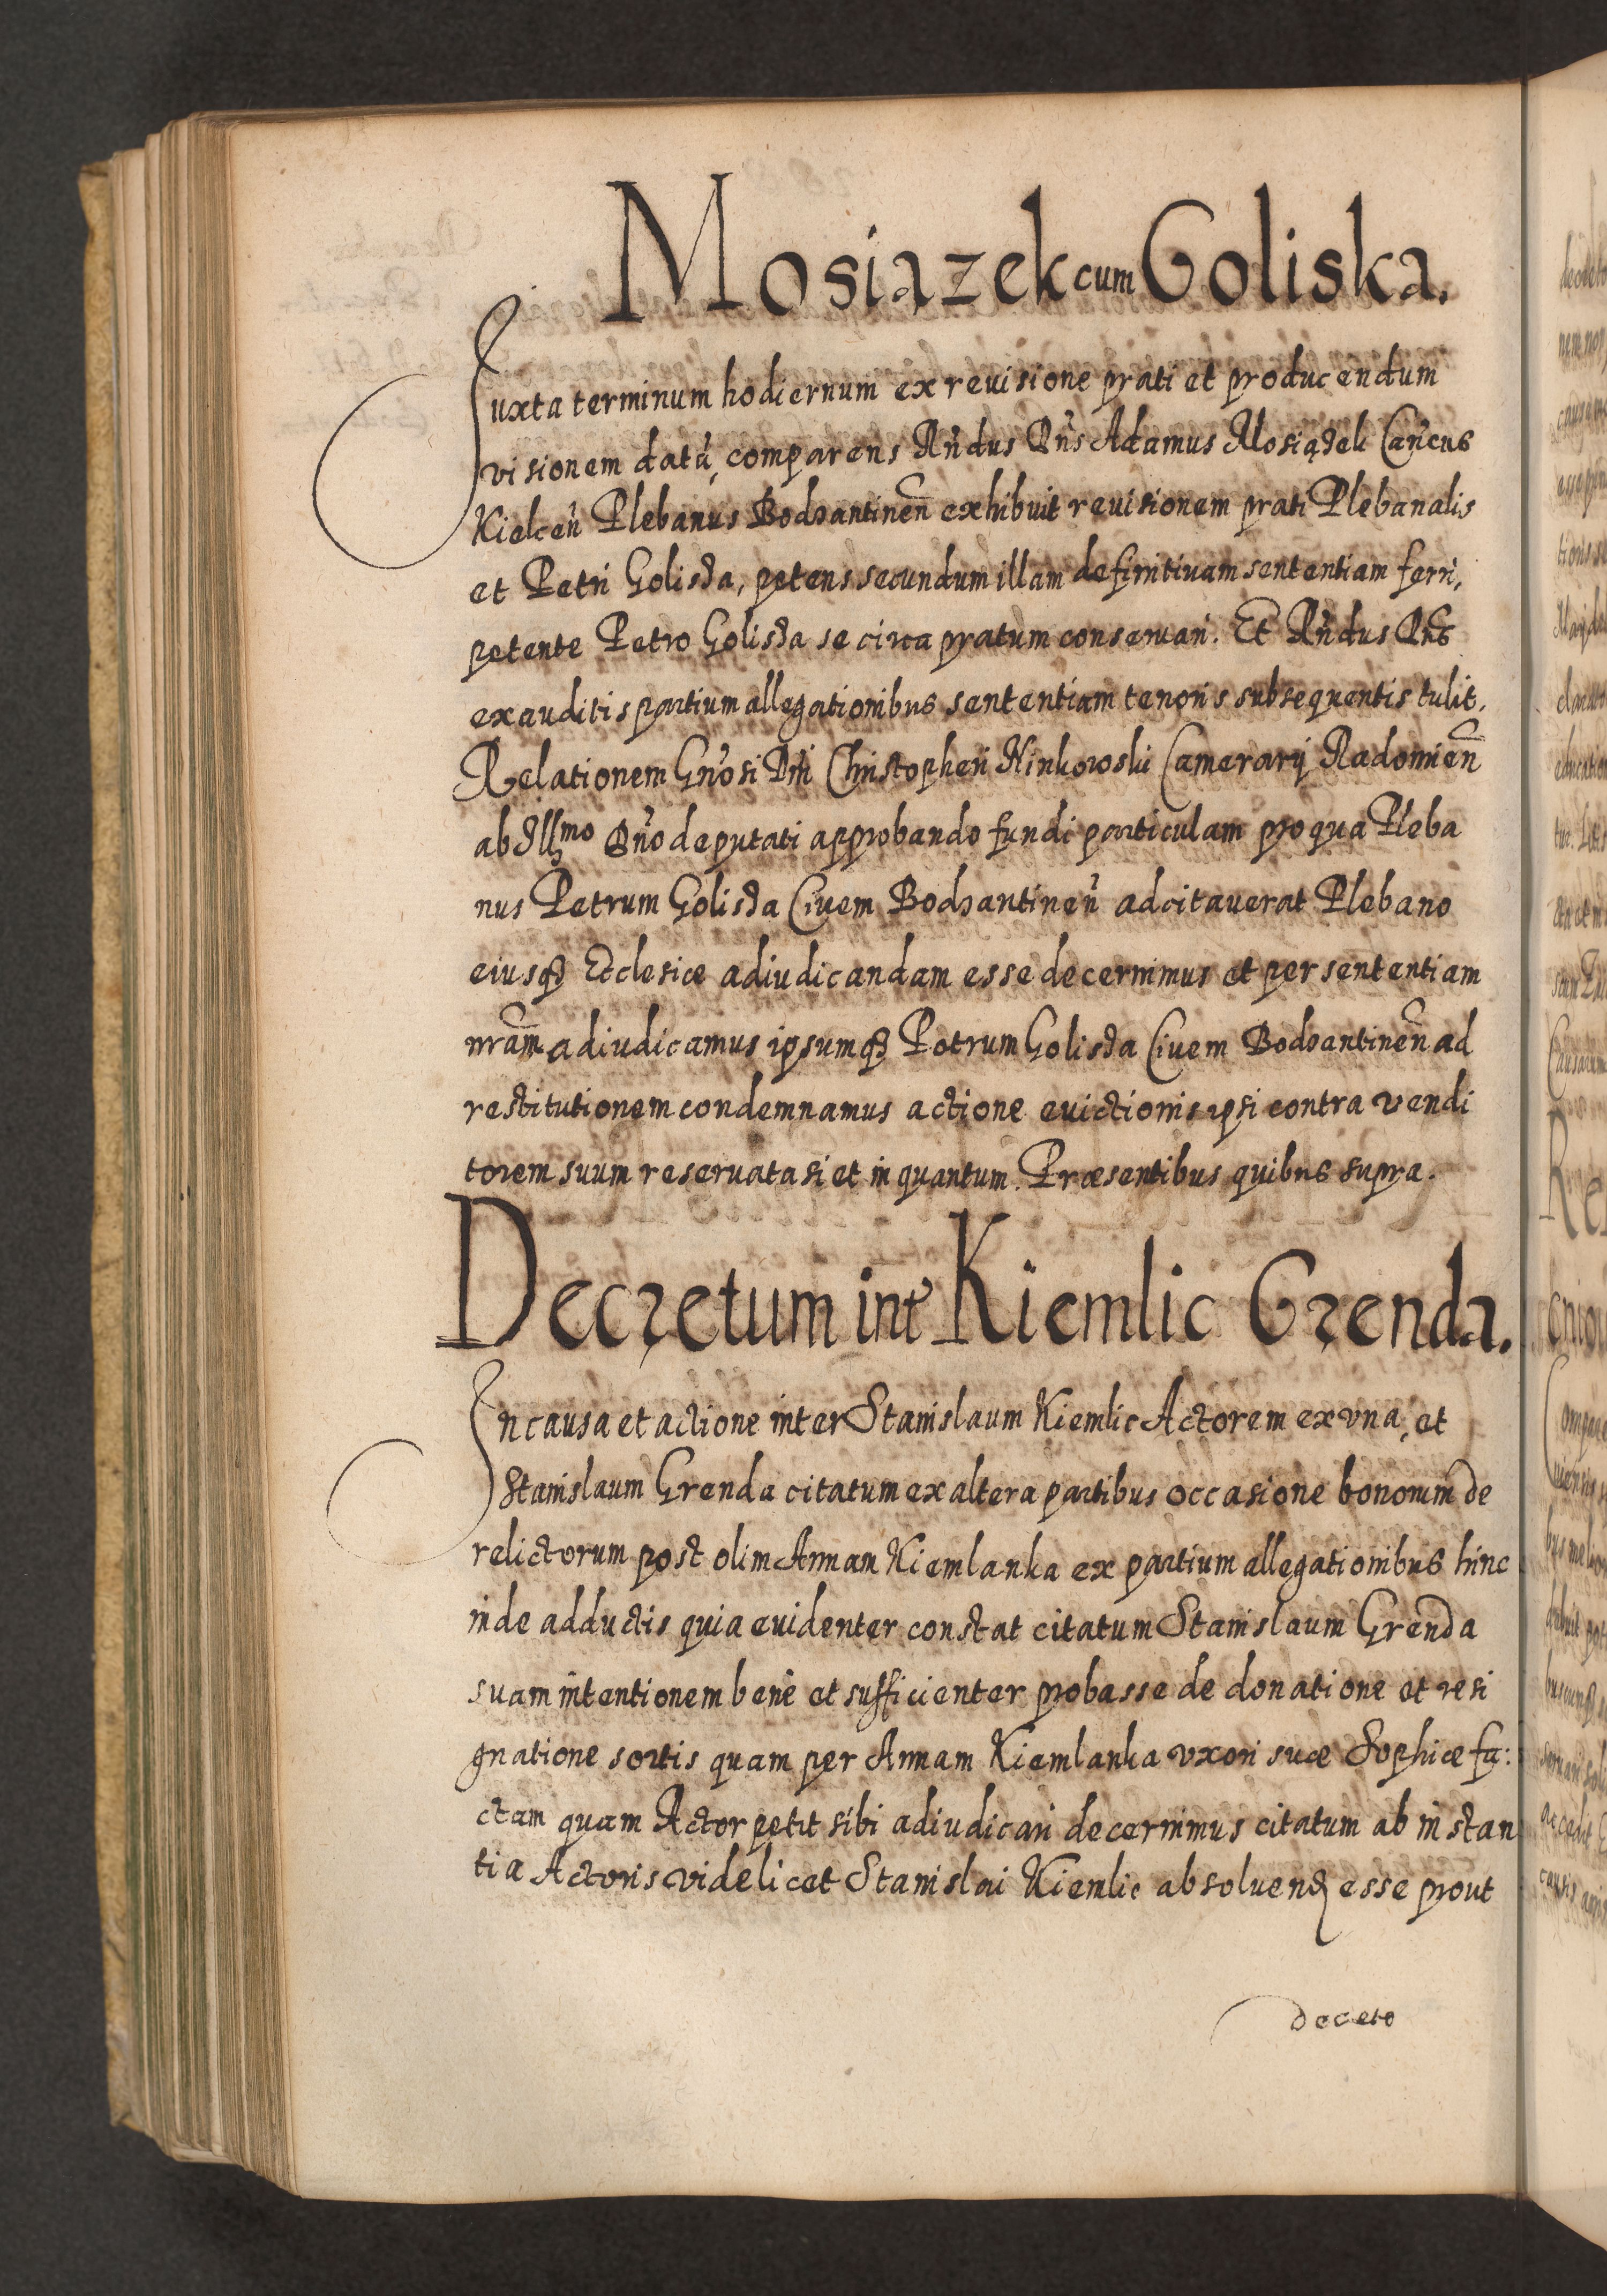 Mosiazek cum Goliska.
Juxta terminum hodiernum ex reuisione prati et producendum
visionem datũ, comparens Rñdus Dñs Adamus Mosiązek Cañcus
Kielceñ Plebanus Bodzantineñ exhibuit reuisionem prati Plebanalis
et Petri Goliszka, petens secundum illam definitiuam sententiam ferri,
petente Petro Goliszka se circa pratum conseruari. Et Rñdus Dñs
exauditis partium allegationibus sententiam tenoris subsequentis tulit.
Relationem Gñosi Dñi Christopheri Kinkowski Camerarij Radomieñ
ab Illmo Dño deputati approbando fundi particulam pro qua Pleba
nus Petrum Goliszka Ciuem Bodzantineñ adcitauerat Plebano
eiusq3 Ecclesiæ adiudicandam esse decernimus et per sententiam
nram̃ adiudicamus ipsumq3 Petrum Goliszka Ciuem Bodzantineñ ad
restitutionem condemnamus actione euictionis ipsi contra vendi
torem suum reseruata si et in quantum. Præsentibus quibus supra.
Decretum int Kiemlic Grenda.
In causa et actione inter Stanislaum Kiemlic Actorem ex vna, et
Stanislaum Grenda citatum ex altera partibus occasione bonorum de
relictorum post olim Annam Kiemlanka ex partium allegationibus hinc
inde adductis quia euidenter constat citatum Stanislaum Grenda
suam intentionem benè et sufficienter probasse de donatione et resi
gnatione sortis quam per Annam Kiemlanka vxori suæ Sophiæ fa:
ctam quam Actor petit sibi adiudicari decernimus citatum ab instan
tia Actoris videlicet Stanislai Kiemlic absoluend esse prout